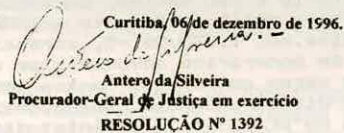 Curitiba, 06/de dezembro de 1996.
Antero da Silveira
Procurador-Geral de Justiça em exercício
RESOLUÇÃO Nº 1392